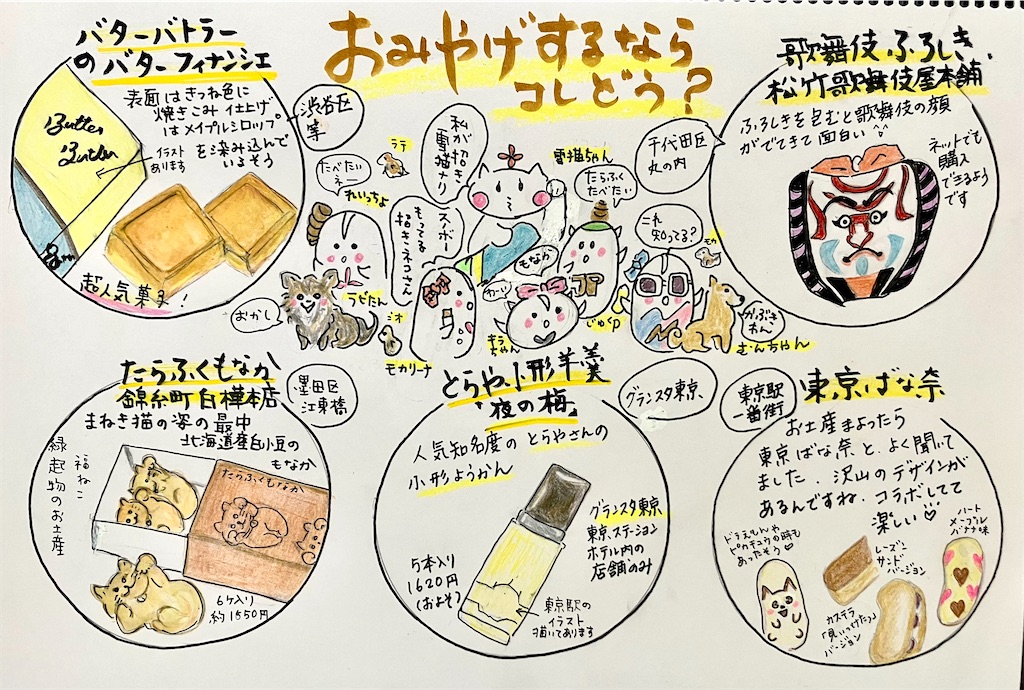 おみやげするなら
コレどう?
バターバトラー
のバターフィナンシェ
表面はきつね色に
焼きこみ 仕上げ
はメイプルシロップ
を染み込んで
いるそう
イラスト
あります
Butter
Butler
超人気菓子!
渋谷区
等
たべたい
ネ
れいっちょ
ラテ
私が招き
電猫ナリ
電猫ちゃん
たらふく
たべたい
スイボー
もってる
招きネコさん
これ
知ってる?
モカ
もなか
わーい
おかし
ラビたん
ミオ
モカリーナ
じゅくP
かぶき
わん
むんちゃん
千代田区
丸の内
歌舞伎 ふろしき、
松竹歌舞伎屋本舗
ふろしきを包むと歌舞伎の顔
がでてきて面白い
ネットでも
購入
できるよう
です
たらふくもなか
錦糸町白樺本店
墨田区
江東橋
まねき猫の姿の最中
北海道産白小豆の
もなか
福ねこ
縁起物のお土産
たらふくもなか
6ケ入り
約1550円
とらや、小形羊羹
「夜の梅」
グランスタ東京、
人気知名度の とらやさんの
小形ようかん
グランスタ東京
東京ステーション
ホテル内の
店舗のみ
5本入り
1620円
(およそ)
東京駅の
イラスト
描いてあります
東京駅
一番街
東京ばな奈
お土産まよったら
東京ばな奈と、よく聞いて
ました。沢山のデザインが
あるんですね。コラボしてて
楽しい
ドラえもんや
ピカチュウの時も
あったそう
レーズン
サンド
バージョン
ハート
メープル
バナナ味
カステラ
「見ぃつけたっ」
バージョン